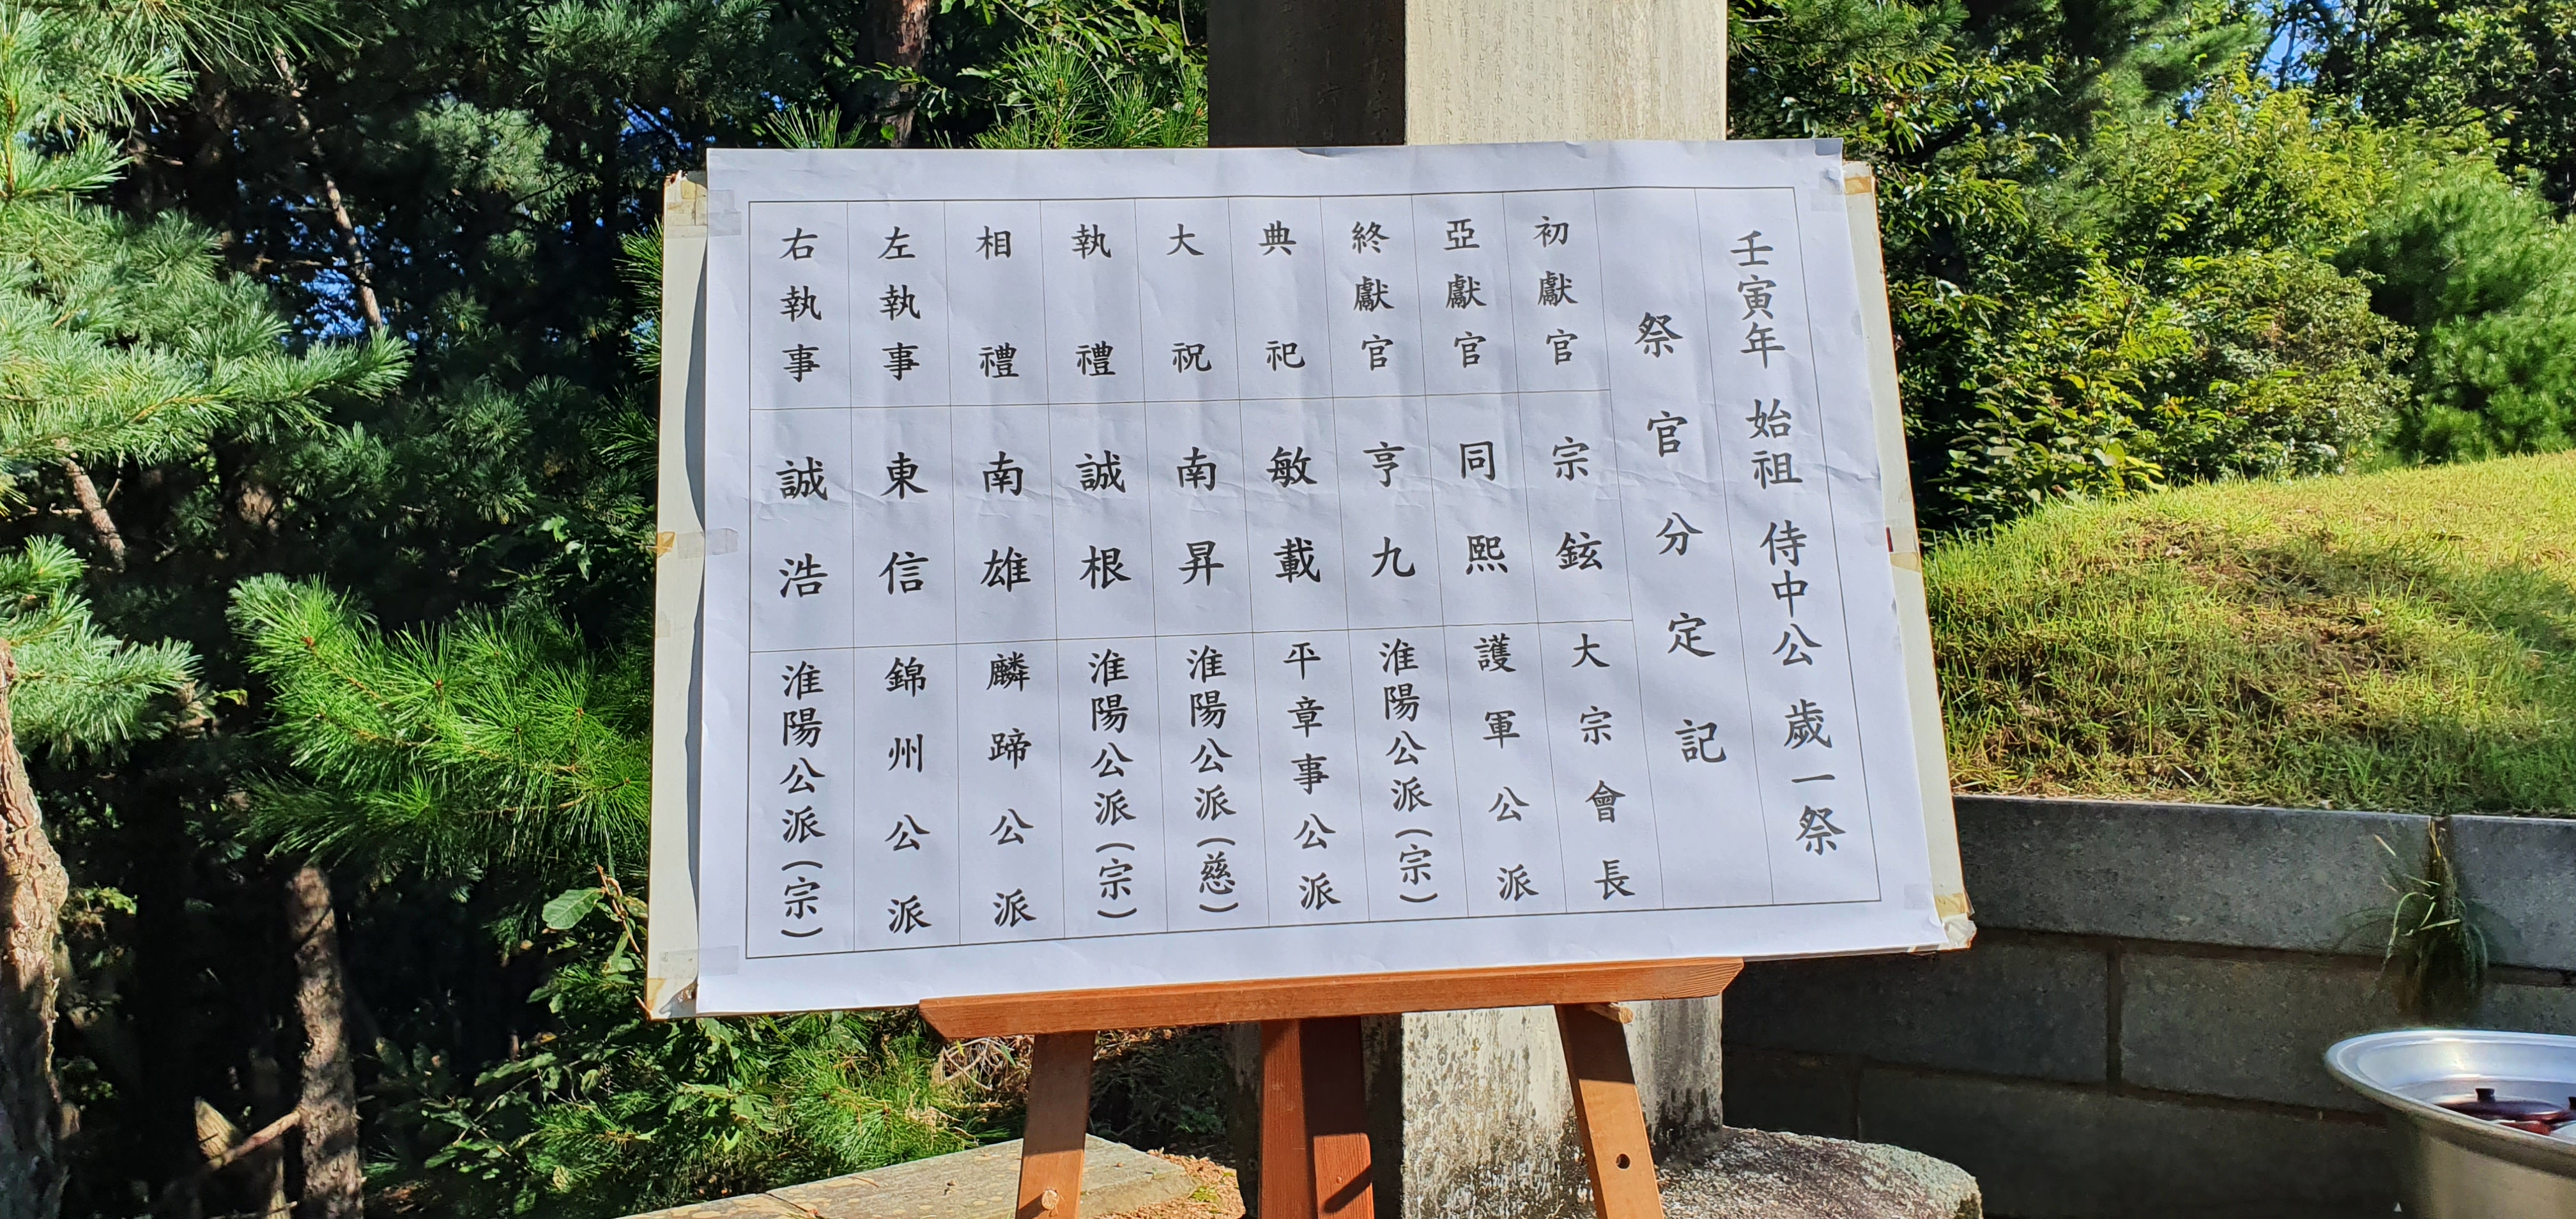 壬寅年 始祖 侍中公 歲一祭
祭官分定記
初獻官 宗鉉 大宗會長
亞獻官 同熙 護軍公派
終獻官 亨九 淮陽公派(宗)
典祀 敏載 平章事公派
大祝 南昇 淮陽公派(慈)
執禮 誠根 淮陽公派(宗)
相禮 南雄 麟蹄公派
左執事 東信 錦州公派
右執事 誠浩 淮陽公派(宗)